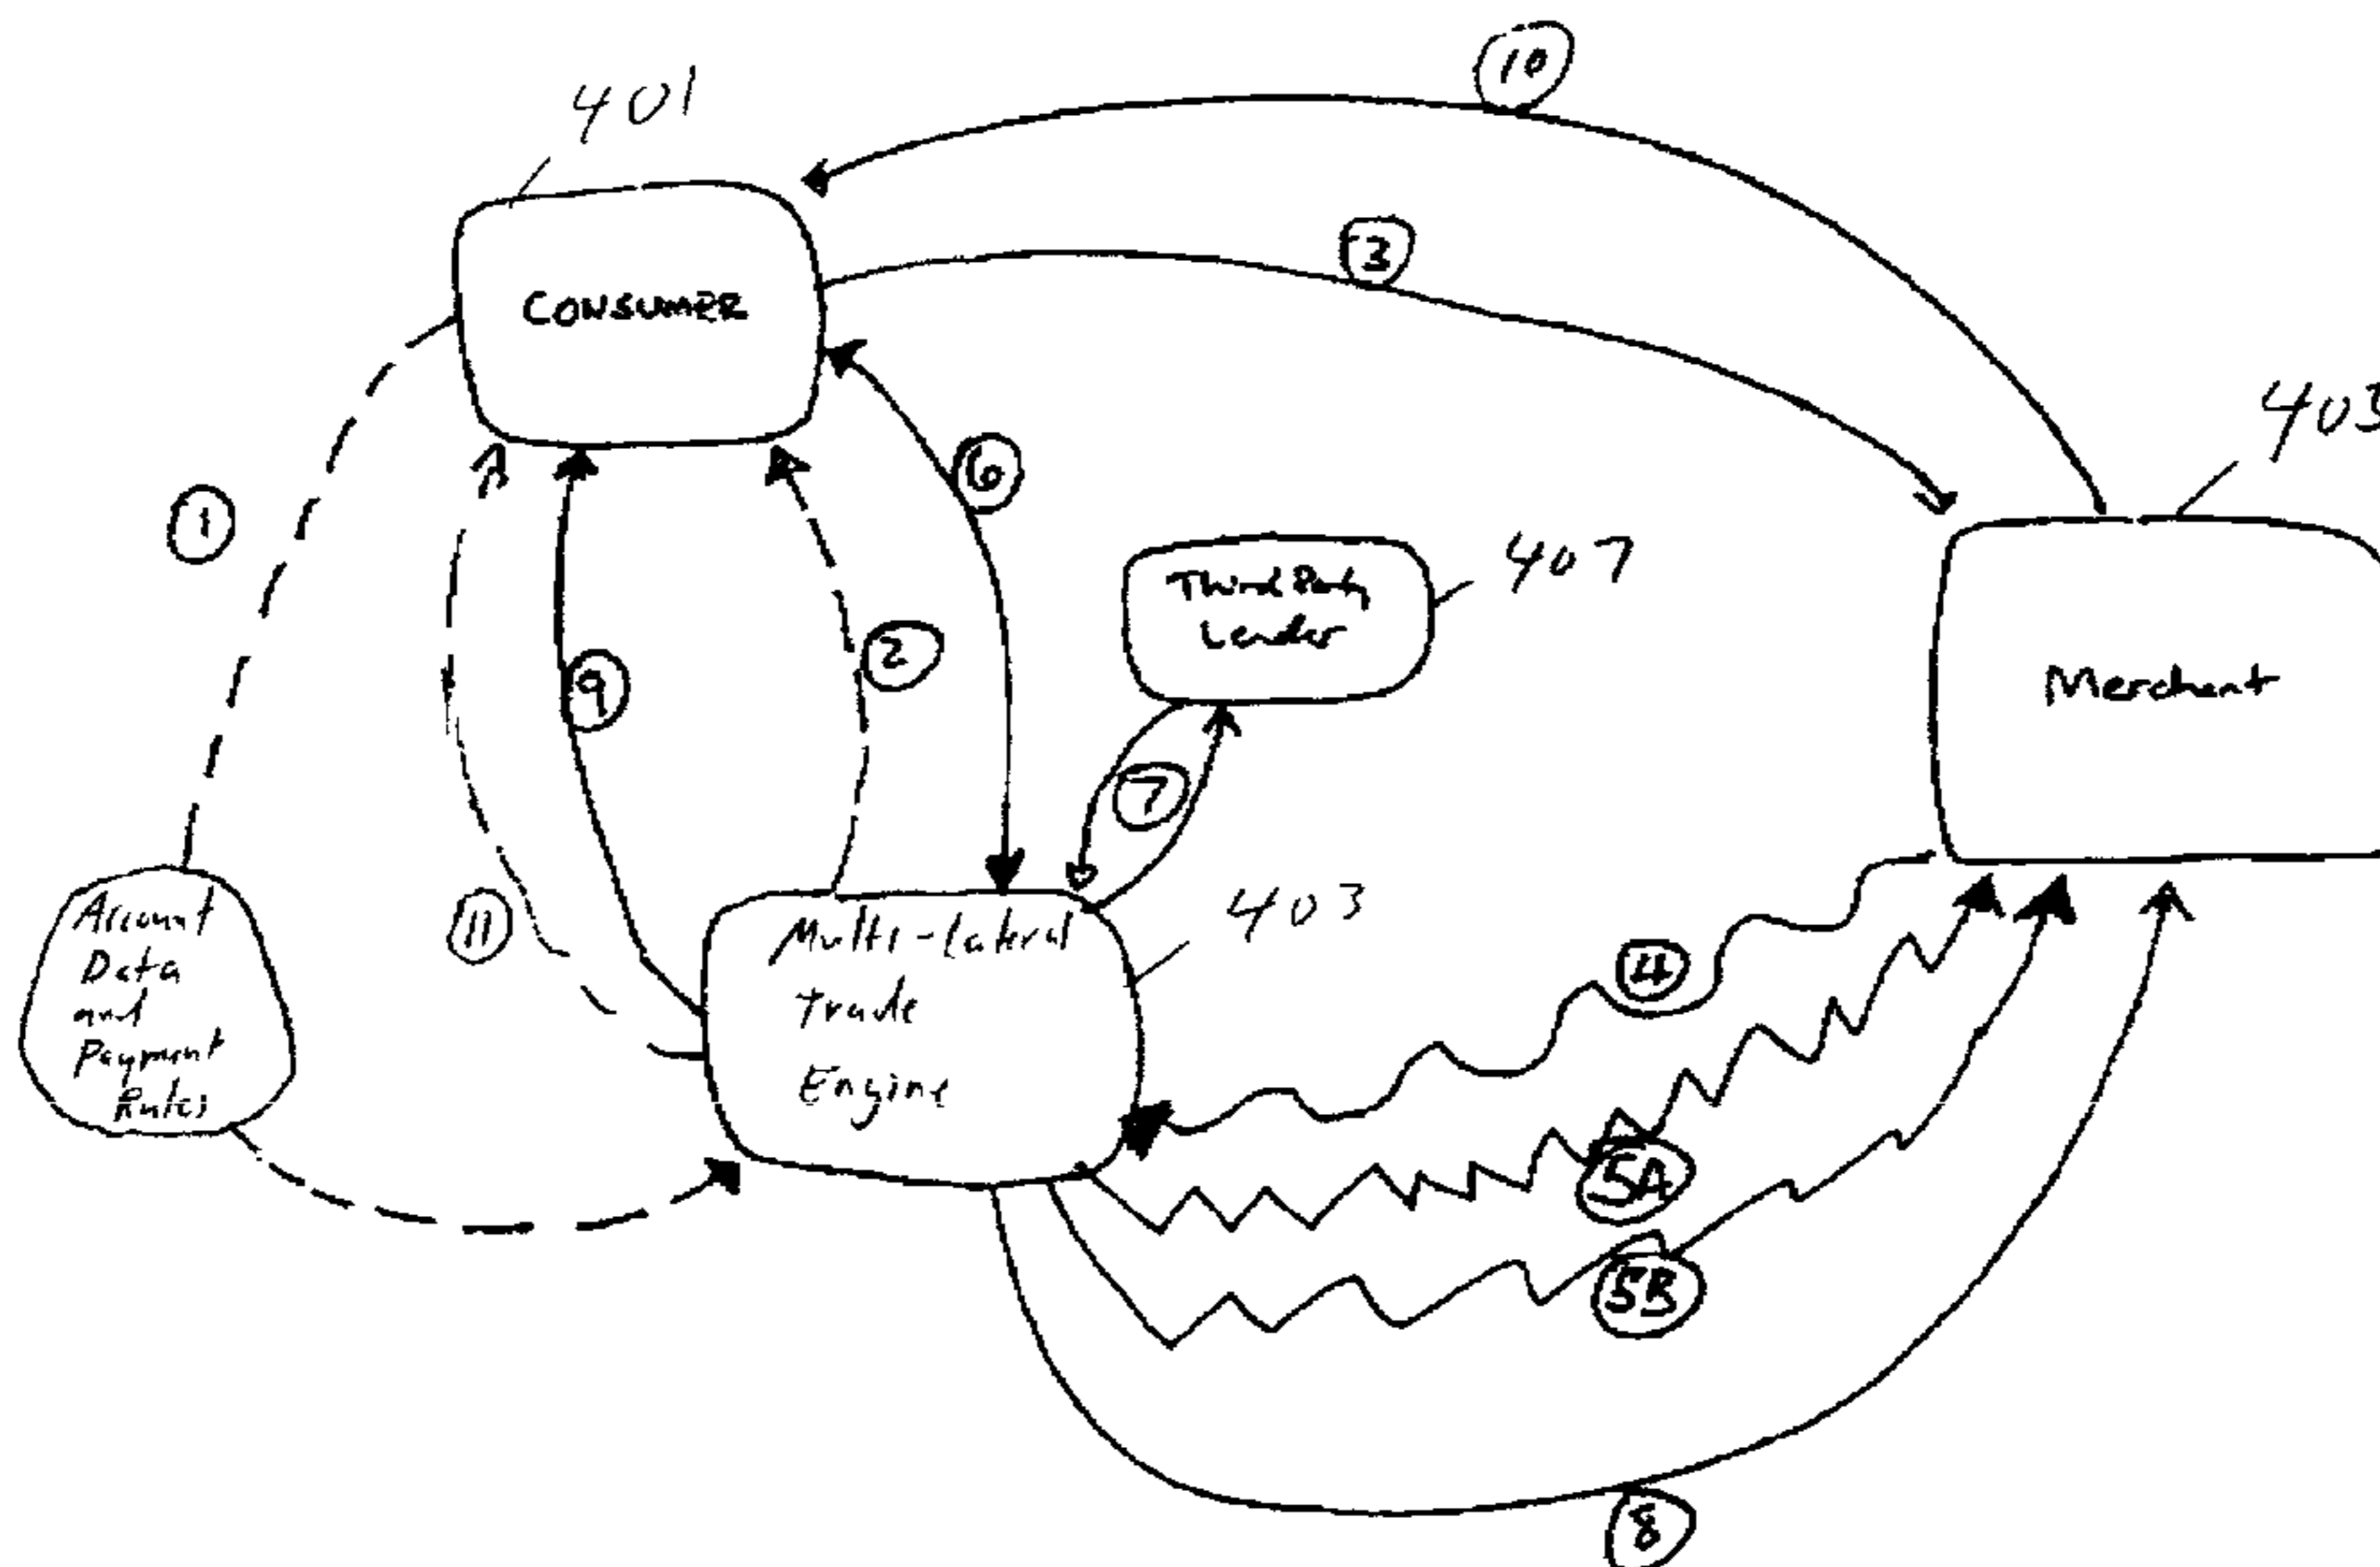 10
401
3
CONSUMER
403
6
1
407
Third Party
Lender
2
9
Merchant
7
403
11
Account
Data
and
Payment
Rules
Multi-Lateral
trade
Engine
4
5A
5B
8